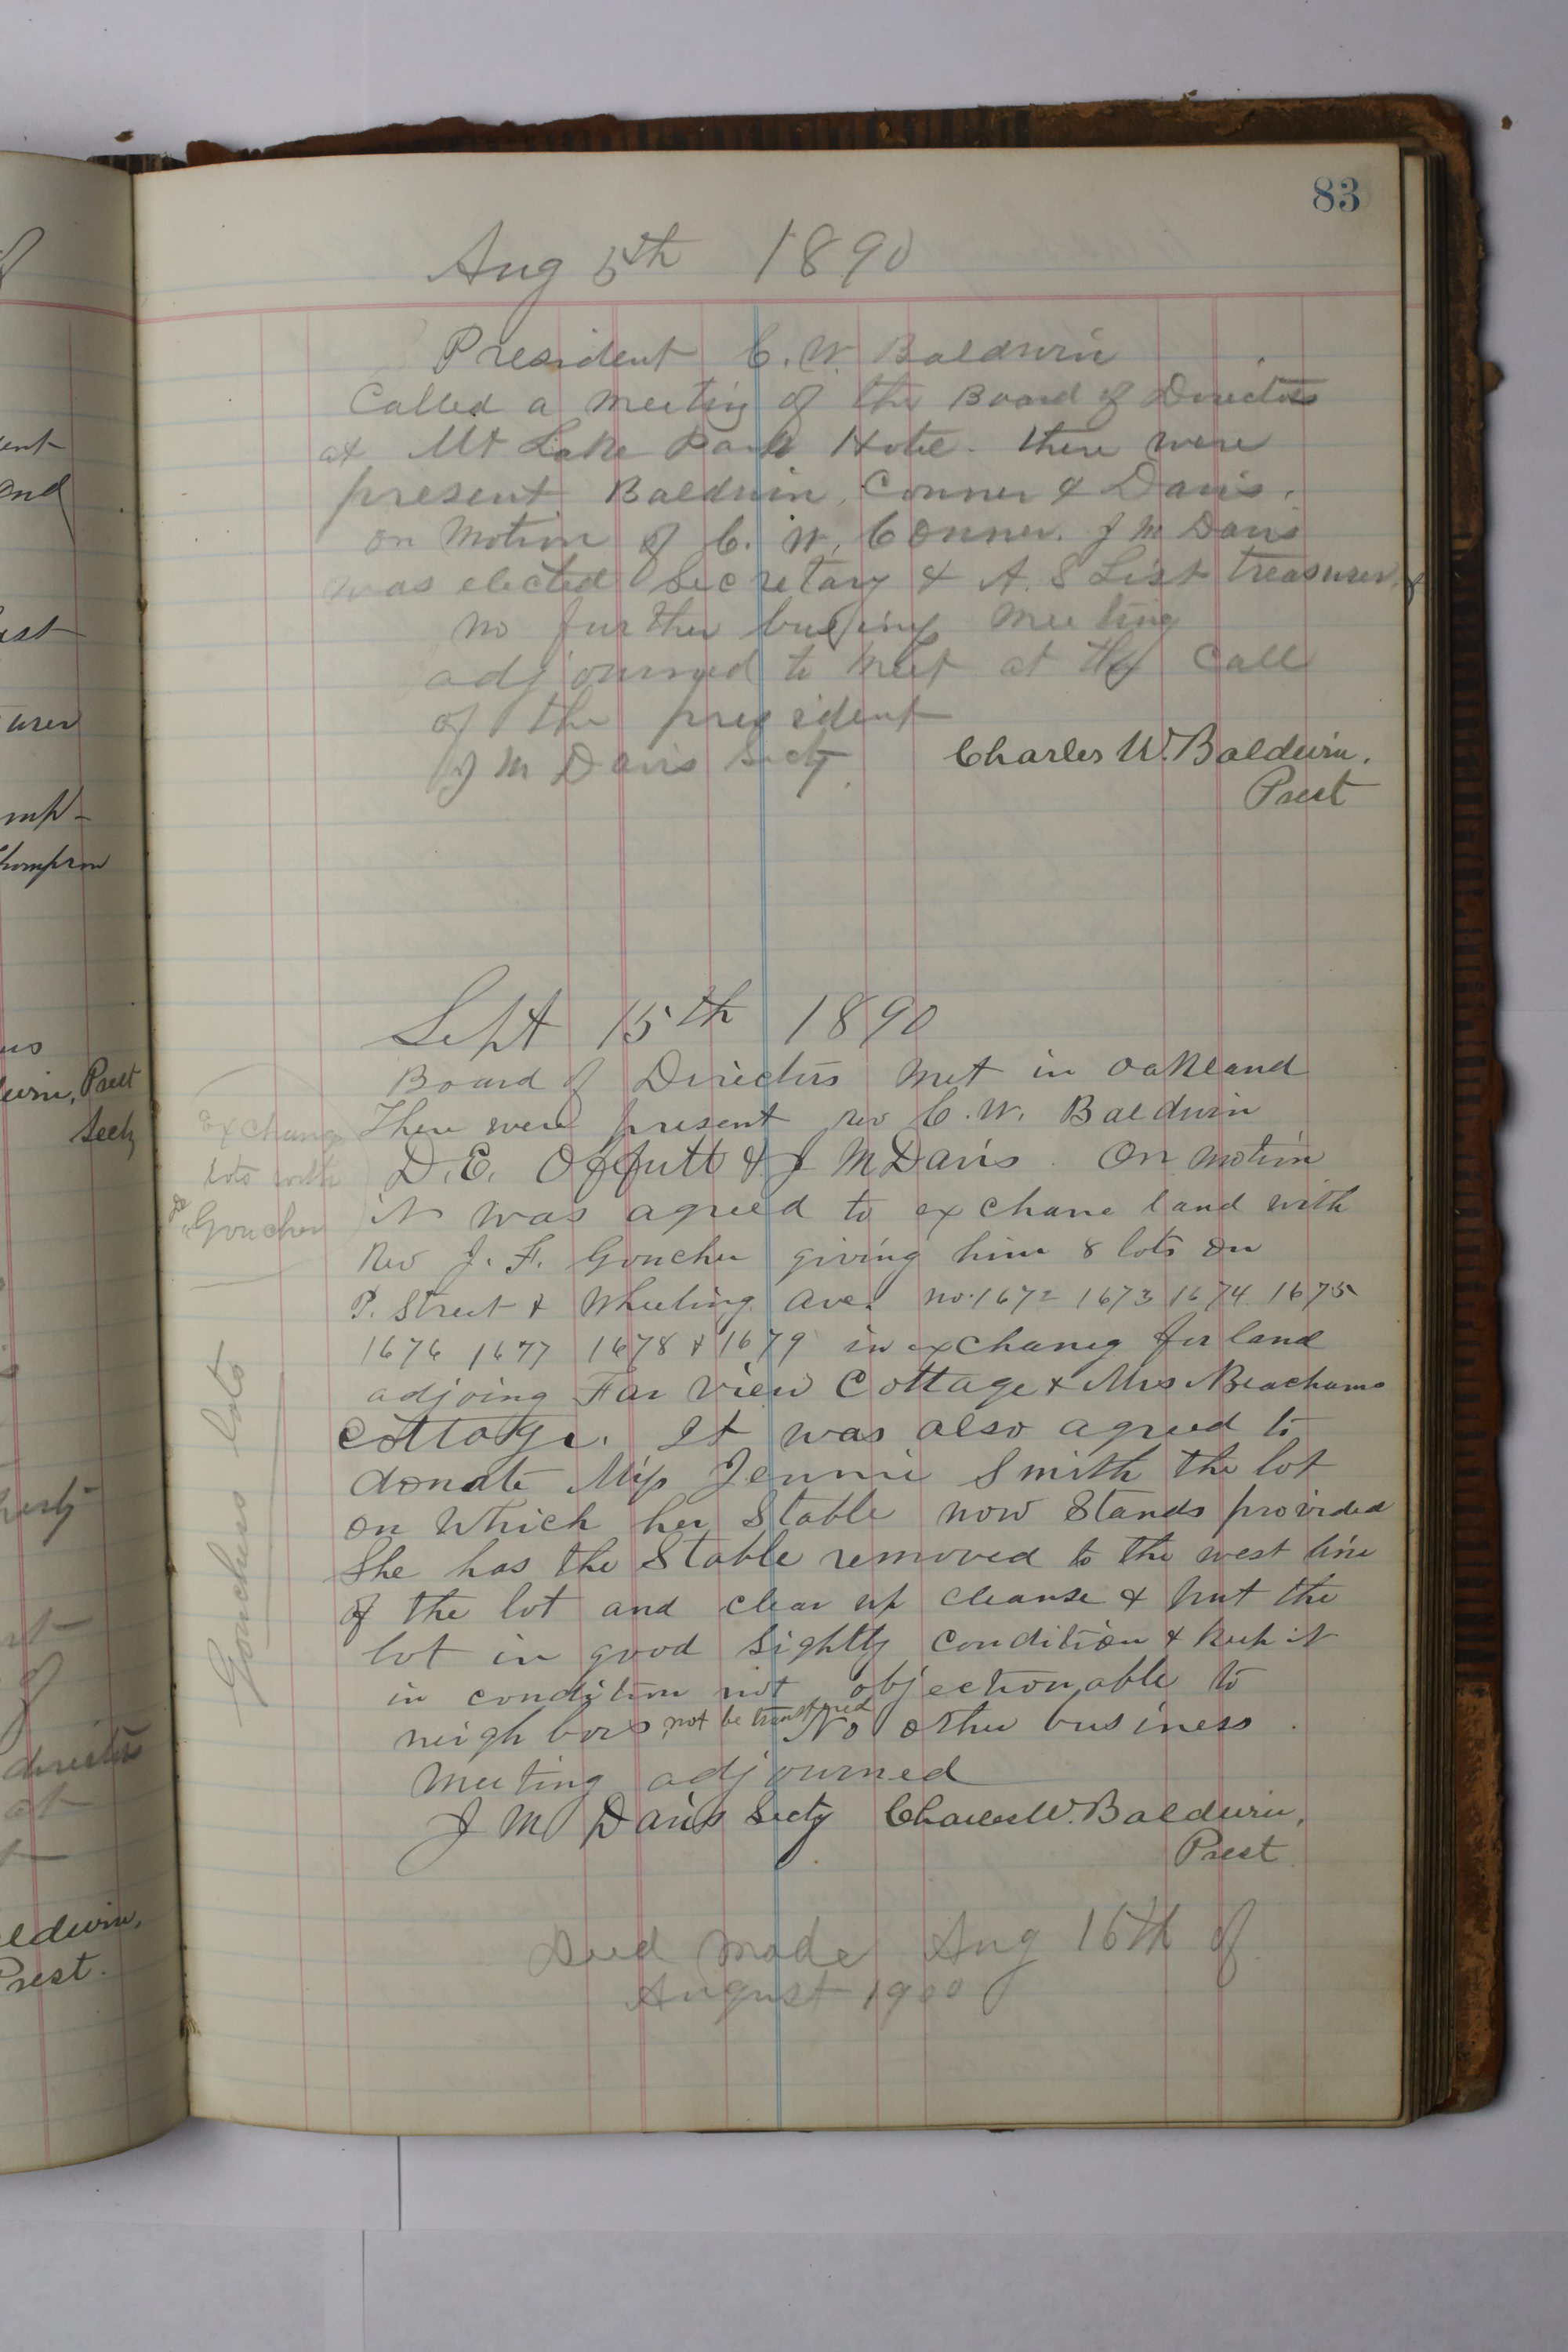 83
Aug 5th 1890
President C. W. Baldwin
Called a meeting of the Board of Directors
at Mt Lake Park Hotel. there were
present Baldwin, Conner & Davis.
on motion of C. W. Conner. J M Davis
was elected Secretary & A. S List treasurer. &
no further business meeting
adjourned to meet at the call
of the president
J M Davis Secty. Charles W. Baldwin,
Prest
Sept 15th 1890
Board of Directors met in Oakland
There were present rev C. W. Baldwin
D. E. Offutt & J M Davis. On motion
it was agreed to exchane land with
Rev J. F. Goucher giving him 8 lots on
P. Street & Wheeling Ave. no. 1672 1673 1674 1675
1676 1677 1678 & 1679 in exchaneg for land
adjoing Far View Cottage & Mrs Beachams
Cottage. It was also agreed to
donate Miss Jennie Smith the lot
on which her Stable now Stands provided
She has the Stable removed to the west line
of the lot and clear up cleanse & put the
lot in good Sightly condition & keep it
in condition not objectionable to
neighbors not be transfered No other business.
Meeting adjourned
J M Davis Secty Charles W. Baldwin,
Prest
Deed made Aug 16th of
August 1900
exchange
lots with
Goucher
Gouchers lots
ent
and
urer
hompson
Prest
Secty
directors
at
aldwin,
Prest.